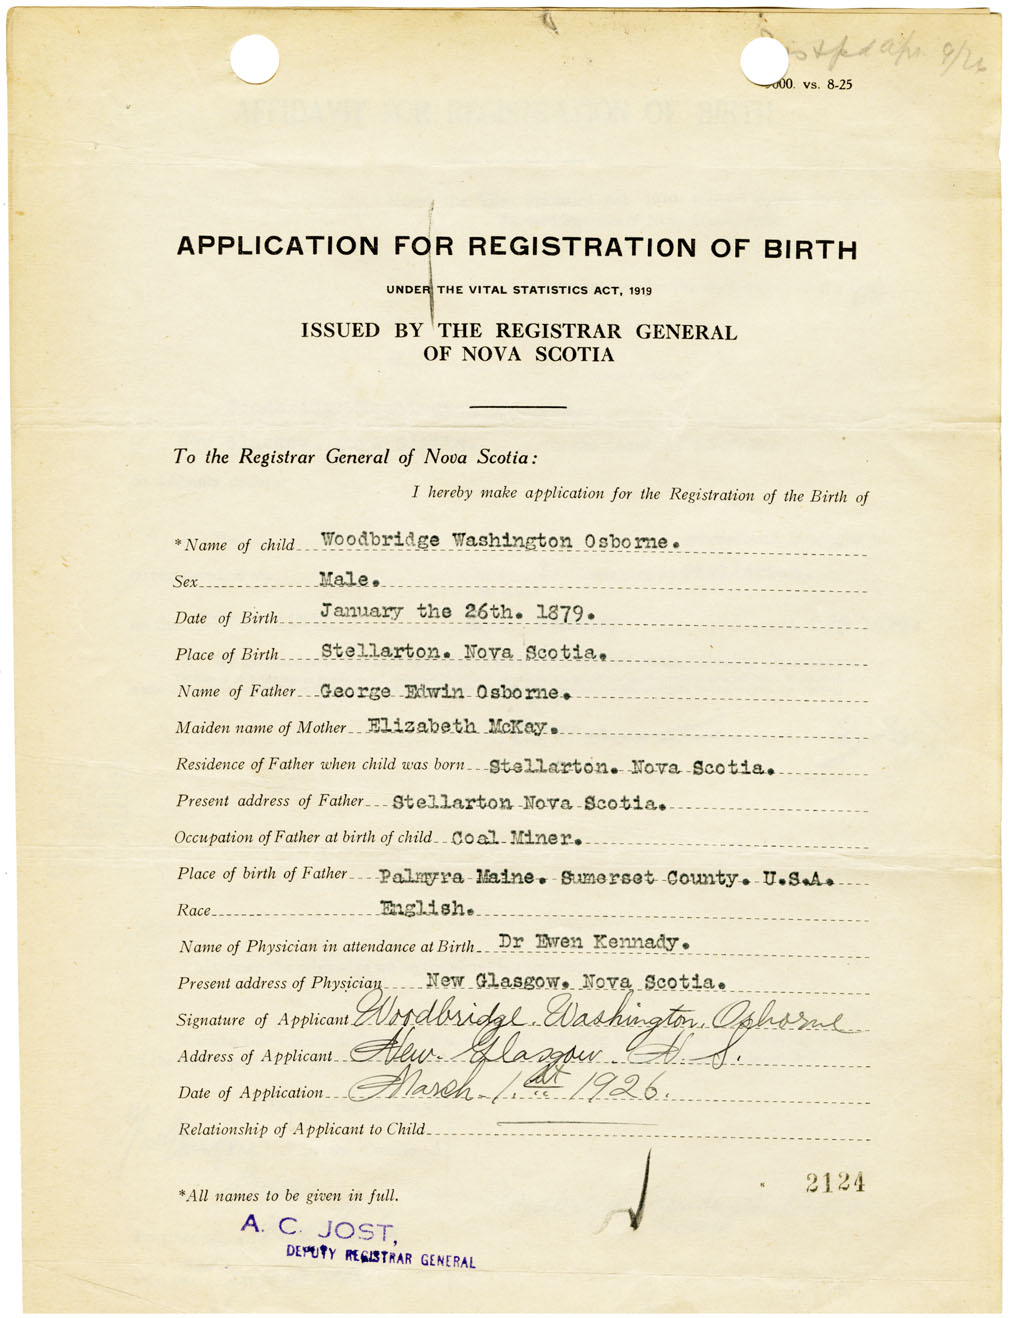 apr 9/26
000. vs. 8-25
APPLICATION FOR REGISTRATION OF BIRTH
UNDER THE VITAL STATISTICS ACT, 1919
ISSUED BY THE REGISTRAR GENERAL
OF NOVA SCOTIA
To the Registrar General of Nova Scotia:
I hereby make application for the Registration of the Birth of
*Name of child Woodbridge Washington Osborne.
Sex Male.
Date of Birth January the 26th. 1879.
Place of Birth Stellarton. Nova Scotia.
Name of Father George Edwin Osborne.
Maiden name of Mother Elizabeth McKay.
Residence of Father when child was born Stellarton. Nova Scotia.
Present address of Father Stellarton Nova Scotia.
Occupation of Father at birth of child Coal Miner.
Place of birth of Father Palmyra Maine. Sumerset County. U.S.A.
Race English.
Name of Physician in attendance at Birth Dr Ewen Kennady.
Present address of Physician New Glasgow. Nova Scotia.
Signature of Applicant Woodbridge. Washington. Osborne
Address of Applicant New. Glasgow N. S.
Date of Application March. 1.st 1926.
Relationship of Applicant to Child
2124
*All names to be given in full.
A. C. JOST,
DEPUTY REGISTRAR GENERAL